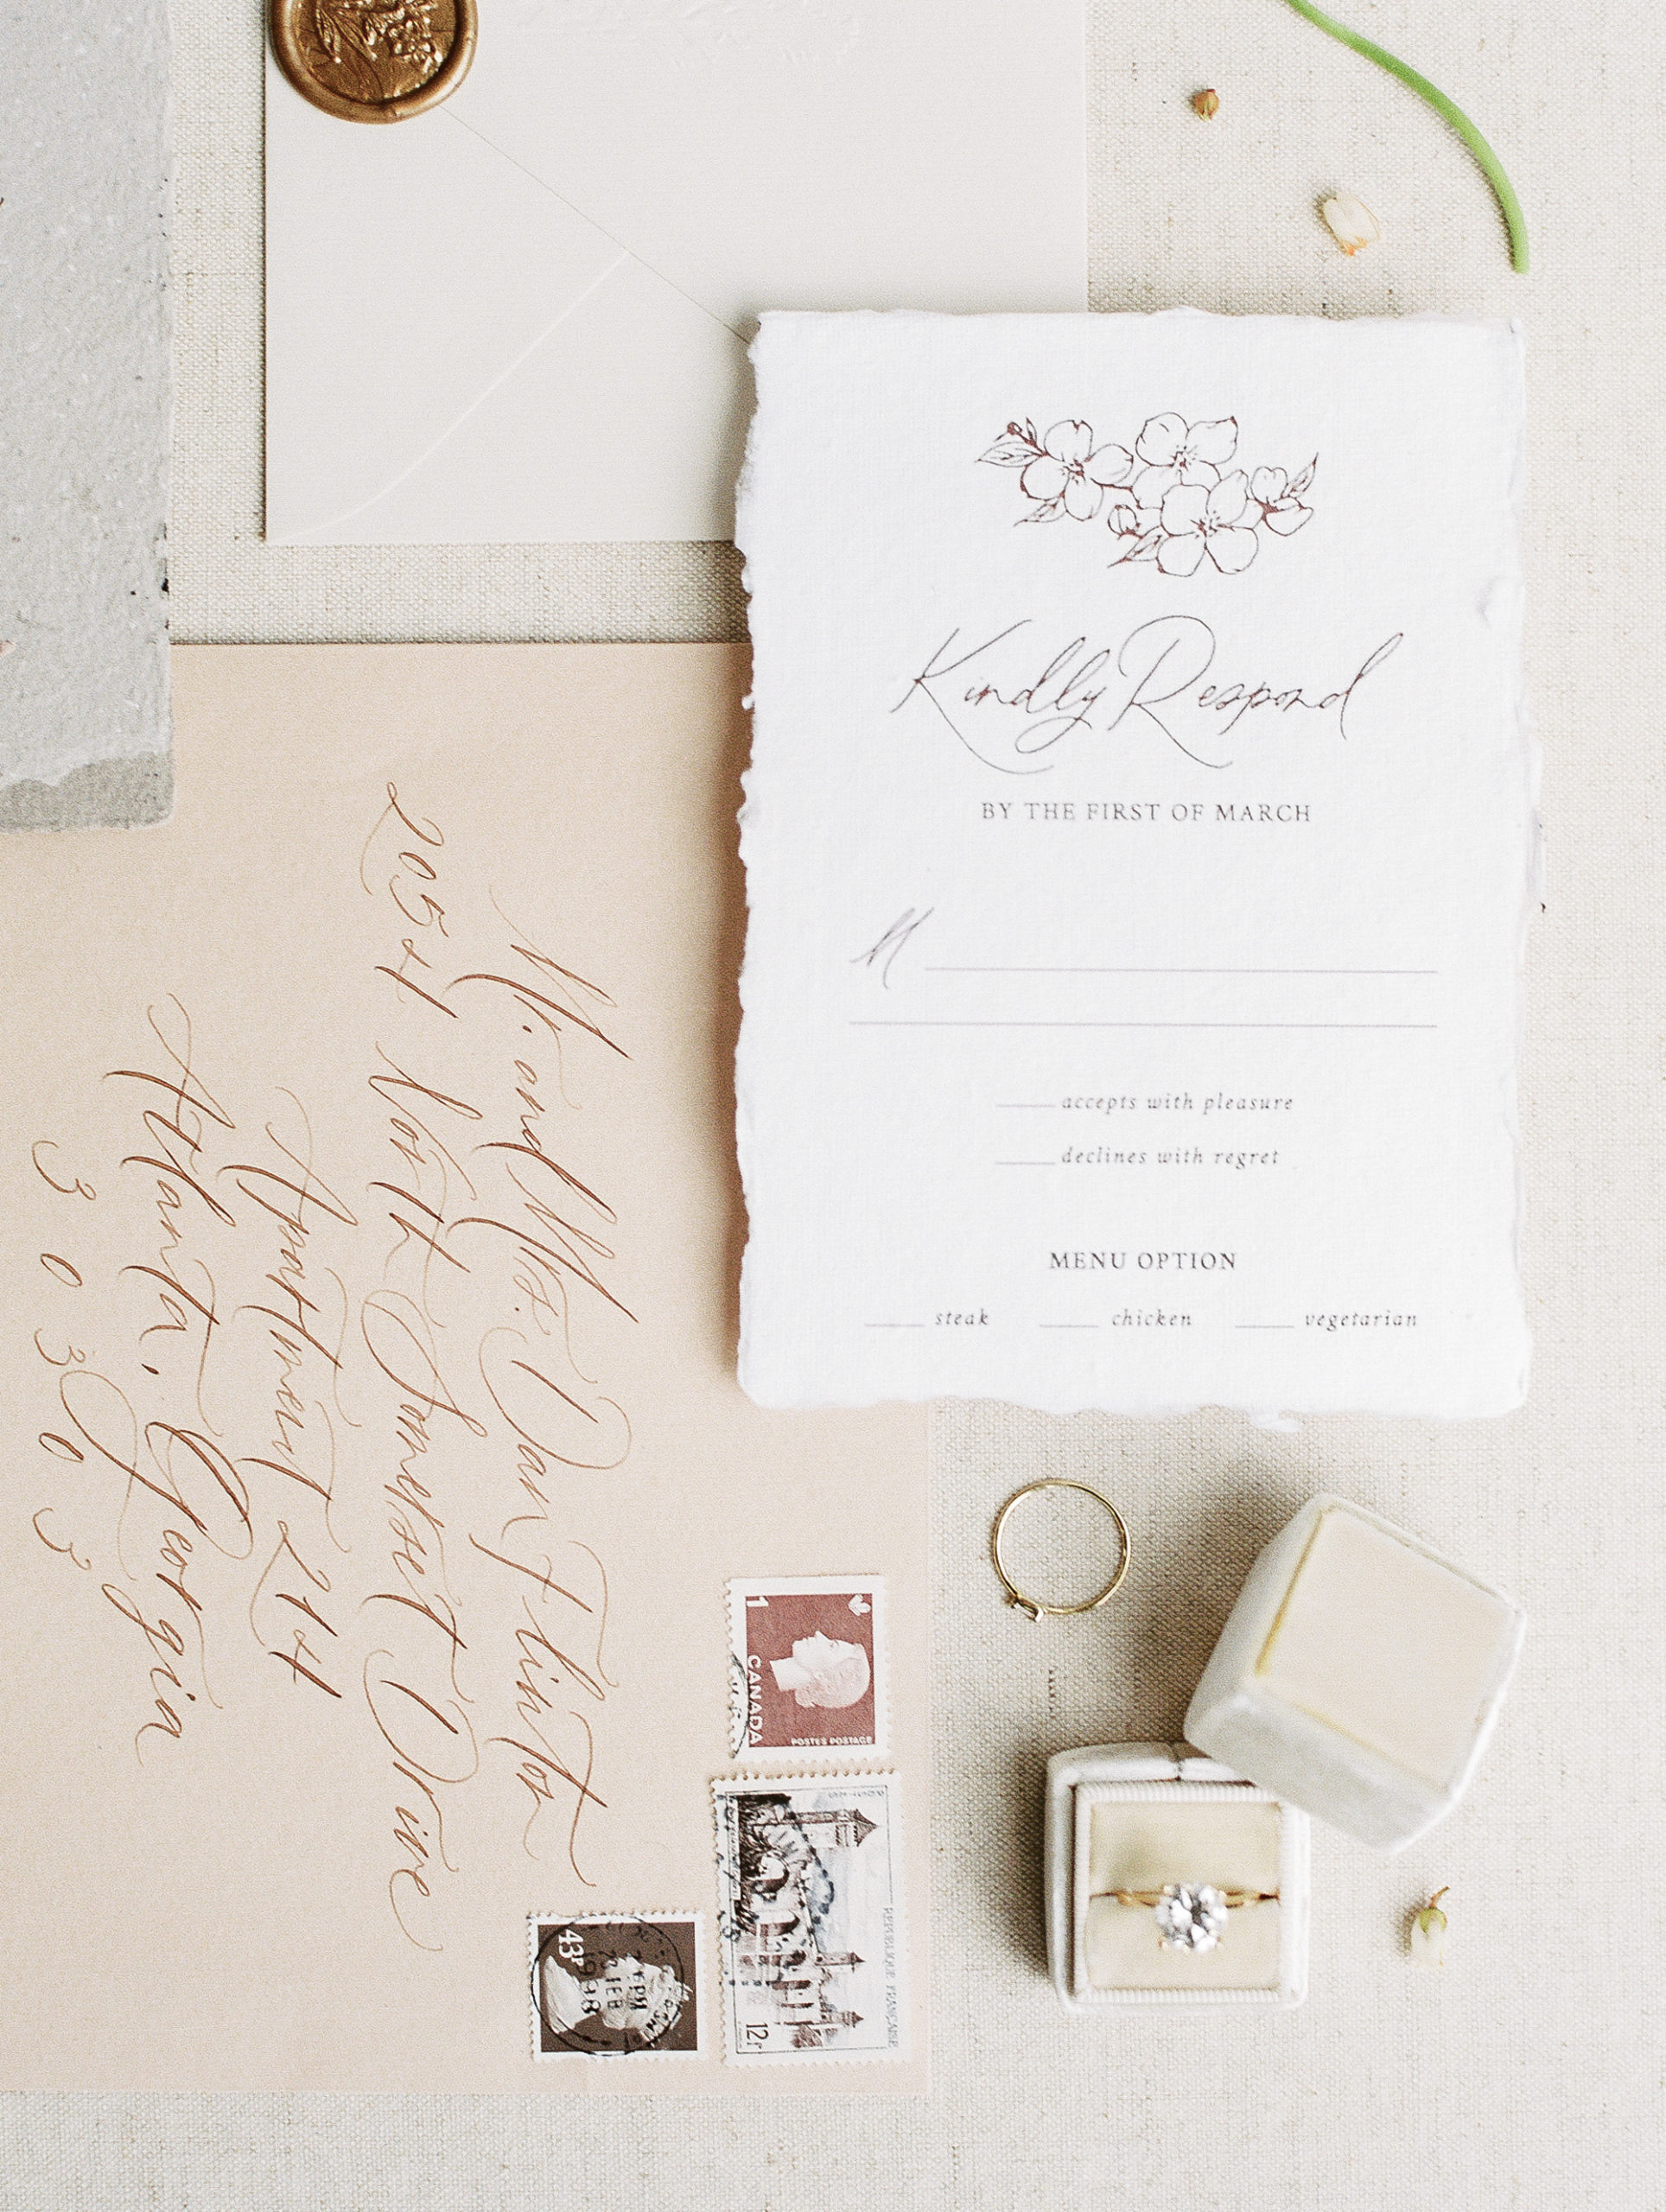 Kindly Respond
BY THE FIRST OF MARCH
M
accepts with pleasure
declines with regret
MENU OPTION
steak chicken vegetarian
Mr. and Mrs. Dan Flinton
2054 North Somerset Drive
Apartment 214
Atlanta, Georgia
30303
1
CANADA
POSTES POSTAGE
REPUBLIQUE FRANÇAISE
12f
43
FEB
1998